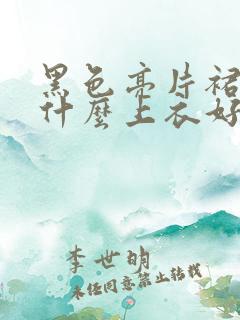 黑色亮片裙
什麼上衣好
李世明
未经同意禁止转载